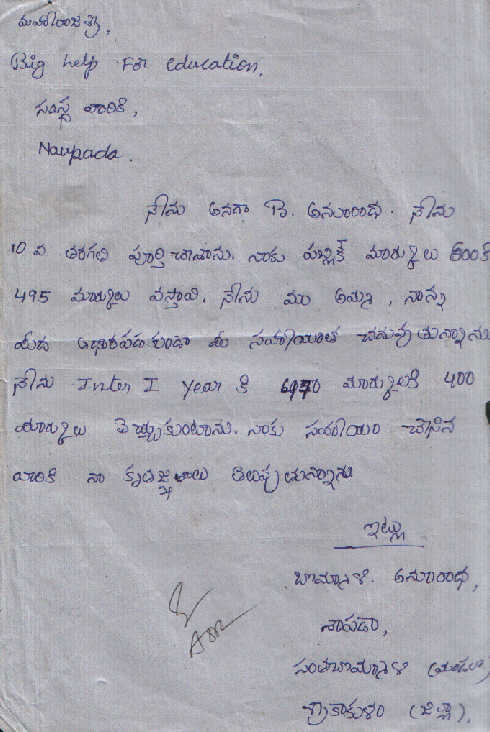 మహారాజశ్రీ,
Big help For education,
సంస్థ వారికి,
Naupada.
నేను అనగా B. అనురాధ. నేను
10 వ తరగతి పూర్తి చేశాను. నాకు పబ్లిక్ మార్కులు 600కి
495 మార్కులు వస్తాయి. నేను మా అమ్మ, నాన్న
మీద ఆధారపడకుండా మీ సహాయంతో చదువుతున్నాను
నేను Inter I Year కి 470 మార్కులకి 400
మార్కులు తెచ్చుకుంటాను. నాకు సహాయం చేసిన
వారికి నా కృతజ్ఞతలు తెలుపుతున్నాను
ఇట్లు
బొమ్మాళి. అనురాధ,
నౌపడా,
సంతబొమ్మాళి (మండలం)
శ్రీకాకుళం (జిల్లా).